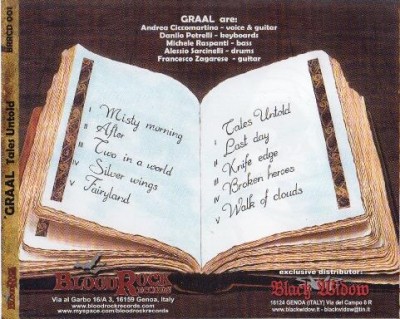 BRRCD 001
GRAAL Tales Untold
GRAAL are:
Andrea Ciccomartino - voice & guitar
Danilo Petrelli - keyboards
Michele Raspanti - bass
Alessio Sarcinelli - drums
Francesco Zagarese - guitar
I Misty morning
II After
III Two in a world
IV Silver wings
V Fairyland
I Tales Untold
II Last day
III Knife edge
IV Broken heroes
V Walk of clouds
BLOODROCK
RECORDS
Via al Garbo 16/A 3, 16159 Genoa, Italy
www.bloodrockrecords.com
www.myspace.com/bloodrockrecords
exclusive distributor:
Black Widow
16124 GENOA (ITALY) Via del Campo 6 R
www.blackwidow.it - blackwidow@tin.it